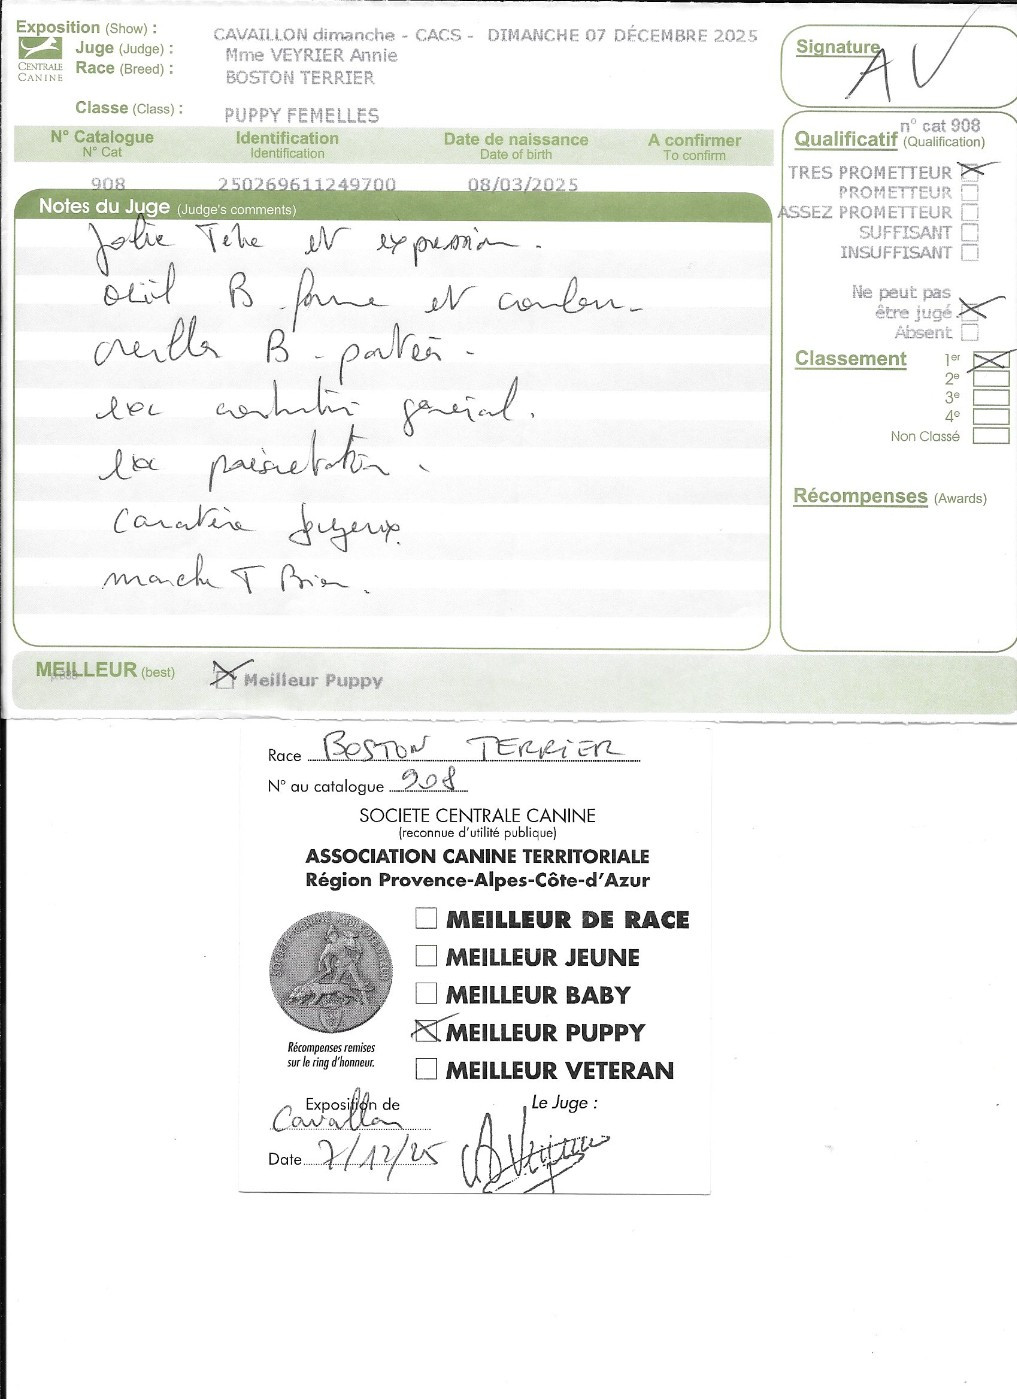 Exposition (Show) : CAVAILLON dimanche - CACS - DIMANCHE 07 DÉCEMBRE 2025
Juge (Judge) : Mme VEYRIER Annie
Race (Breed) : BOSTON TERRIER
CENTRALE
CANINE
Classe (Class) : PUPPY FEMELLES
Signature
AV
N° Catalogue Identification Date de naissance A confirmer
N° Cat Identification Date of birth To confirm
908 250269611249700 08/03/2025
Notes du Juge (Judge's comments)
Jolie Tête et expression.
oeil B forme et couleur
oreilles B. portées.
exc construction général.
exc présentation.
Caractère Joyeux.
marche T Bien.
n° cat 908
Qualificatif (Qualification)
TRES PROMETTEUR
PROMETTEUR
ASSEZ PROMETTEUR
SUFFISANT
INSUFFISANT
Ne peut pas
être jugé
Absent
Classement 1er
2e
3e
4e
Non Classé
Récompenses (Awards)
MEILLEUR (best) Meilleur Puppy
Race BOSTON TERRIER
N° au catalogue 908
SOCIETE CENTRALE CANINE
(reconnue d'utilité publique)
ASSOCIATION CANINE TERRITORIALE
Région Provence-Alpes-Côte-d'Azur
MEILLEUR DE RACE
MEILLEUR JEUNE
MEILLEUR BABY
MEILLEUR PUPPY
MEILLEUR VETERAN
Récompenses remises
sur le ring d'honneur.
Exposition de Cavaillon
Le Juge :
Date 7/12/25